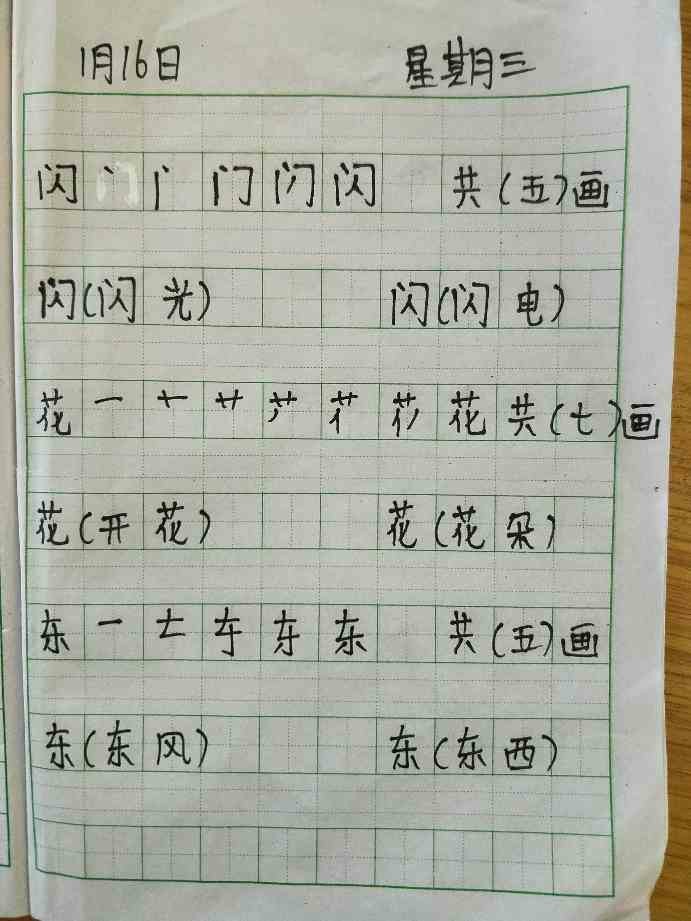 1月16日 星期三
闪 丶 丨丶 门 闪 闪 共(五)画
闪(闪光) 闪(闪电)
花 一 十 艹 花 共(七)画
花(开花) 花(花朵)
东 一 东 共(五)画
东(东风) 东(东西)